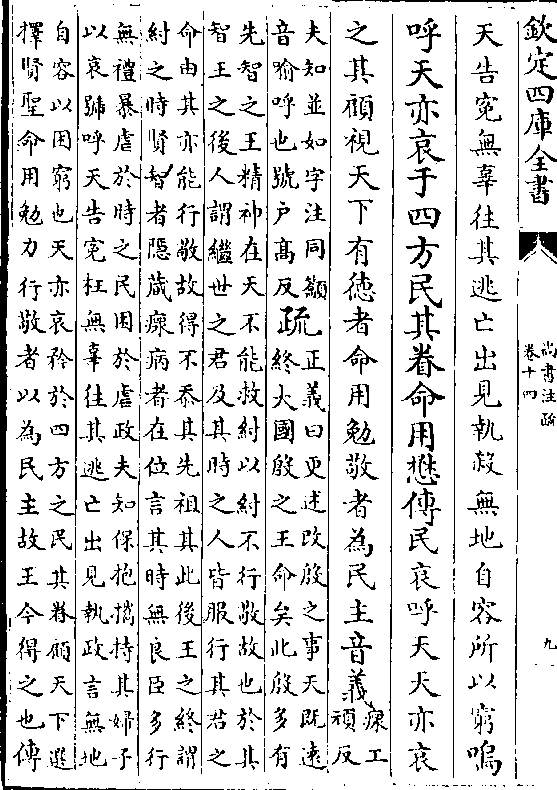 欽定四庫全書
尚書注疏
卷十四
九
天告寃無辜往其逃亡出見執殺無地自容所以窮嗚
呼天亦哀于四方民其眷命用懋傳民哀呼天天亦哀
之其顧視天下有徳者命用勉敬者為民主音義瘝工
頑反
夫知並如字注同籲
音喻呼也號户髙反疏正義曰更述改殷之事天既遠
終大國殷之王命矣此殷多有
先智之王精神在天不能救紂以紂不行敬故也於其
智王之後人謂繼世之君及其時之人皆服行其君之
命由其亦能行敬故得不忝其先祖其此後王之終謂
紂之時賢智者隱藏瘝病者在位言其時無良臣多行
無禮暴虐於時之民困於虐政夫知保抱攜持其婦子
以哀號呼天告寃枉無辜往其逃亡出見執政言無地
自容以困窮也天亦哀矜於四方之民其眷顧天下選
擇賢聖命用勉力行敬者以為民主故王今得之也傳